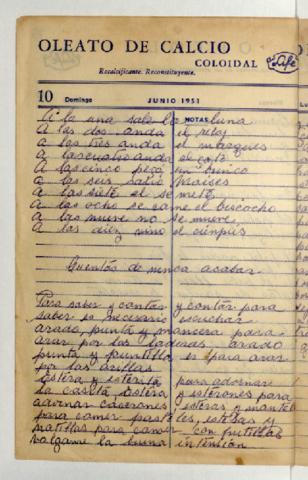 OLEATO DE CALCIO
COLOIDAL
Recalcificante. Reconstituyente.
10 Domingo JUNIO 1951
NOTAS
A la una sale la luna
A las dos anda el reloj
A las tres anda el marques
A las cuatro anda el gato
A las cinco pega un brinco
A las seis salio Moises
A las siete el se mete
A las ocho se come el bizcocho
A las nueve no se mueve
A las diez vino el ciempiés
Cuentos de nunca acabar
Para saber y contar y contar para
saber es necesario escuchar
arado, punta y mancera para
arar por las laderas arado
punta y puntilla es para arar
por las orillas
Estera y esterita para adornar
la casita estera y esterones para
adornar caserones esteras y mantel
para comer pasteles, esteras y
natillas para comer con frutillas
valgame la buena intensión